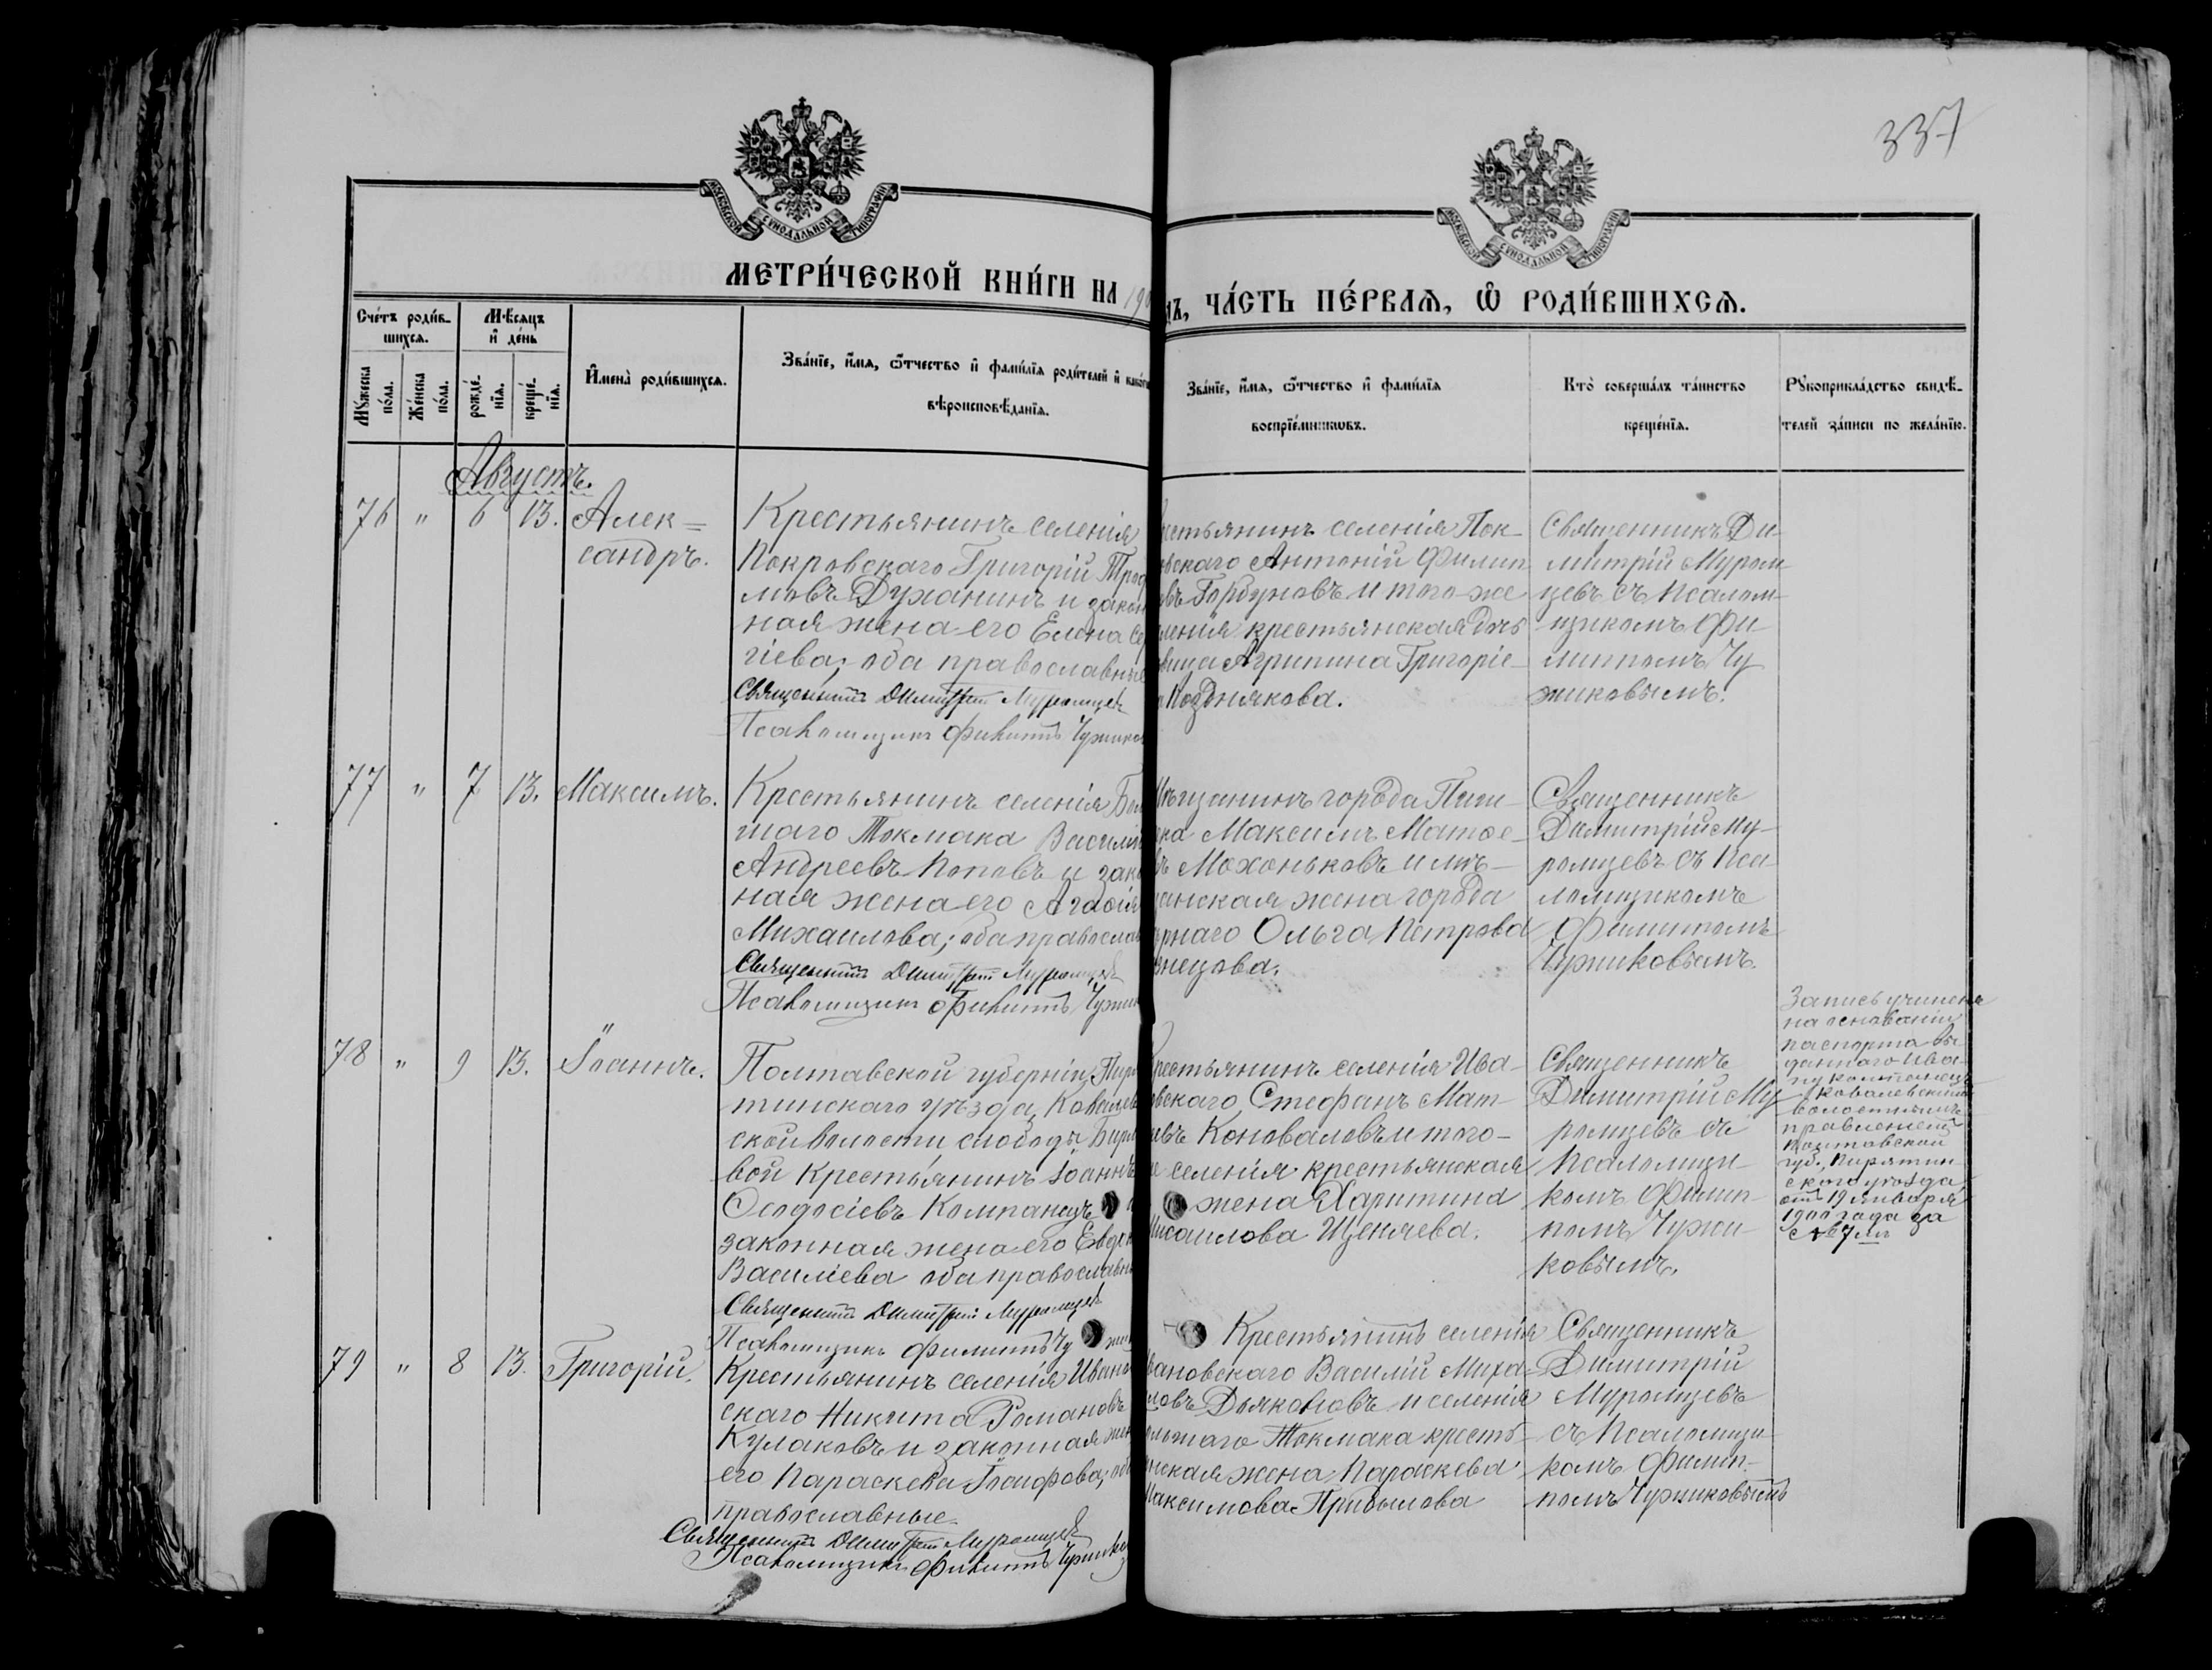 337
МОСКОВСКОЙ СѴНОДАЛЬНОЙ ТИПОГРАФІИ
МОСКОВСКОЙ СѴНОДАЛЬНОЙ ТИПОГРАФІИ
МЕТРИ́ЧЕСКОЙ КНИ́ГИ НА 190
ДЪ, ЧА́СТЬ ПЕ́РВАѦ, Ѽ РОДИ́ВШИХСѦ.
Сче́тъ роди́в-
шихсѧ.
Мѣ́сѧцъ
и҆ де́нь
Мꙋ́жеска
по́ла.
Же́нска
по́ла.
рожде́-
нїѧ.
креще́-
нїѧ.
И҆мена̀ роди́вшихсѧ.
Зва́нїе, и҆́мѧ, ѻ҆́тчество и҆ фамı́лїѧ роди́телей и҆ како́гѡ
вѣроисповѣ́данїѧ.
Зва́нїе, и҆́мѧ, ѻ҆́тчество и҆ фамı́лїѧ
воспрїе́мникѡвъ.
Кто̀ соверша́лъ та́инство
креще́нїѧ.
Рꙋкоприкла́дство свидѣ́-
телей за́писи по жела́нїю.
Августъ.
76 " 6 13. Алек=
сандръ.
Крестьянинъ селенія
Покровскаго Григорій Троф
мовъ Духанинъ и закон
ная жена его Елена Се
гіева; оба православные
Священникъ Димитрій Муромцевъ
Псаломщикъ Филиппъ Чужико
рестьянинъ селенія Пок-
овскаго Антоній Филип
овъ Горбуновъ и того же
ленія крестьянская дѣ
вица Агрипина Григоріе-
а Позднякова.
Священникъ Ди-
митрій Муром
цевъ съ псалом-
щикомъ Фи-
липпомъ Чу
жиковымъ.
77 " 7 13. Максимъ.
Крестьянинъ селенія Бол
шаго Токмака Василій
Андреевъ Поповъ и зако
ная жена его Агафія
Михаилова; оба православ
Священникъ Димитрій Муромцевъ
Псаломщикъ Филиппъ Чужик
Мѣщанинъ города Пиш-
ека Максимъ Матѳе-
въ Мохоньковъ и мѣ-
щанская жена города
рнаго Ольга Петрова
знецова.
Священникъ
Димитрій Му-
ромцевъ съ Пса
ломщикомъ
Филиппомъ
Чужиковымъ.
78 " 9 13. Іоаннъ.
Полтавской губерніи, Пиря
тинскаго уѣзда, Ковалев
ской волости, слободы Бирл
вой крестьянинъ Іоаннъ
Ѳеодосіевъ Компанецъ и
законная жена его Евдок
Василіева оба православны
Священникъ Димитрій Муромцевъ
Псаломщикъ Филиппъ Чужи
рестьянинъ селенія Ива-
овскаго Стефанъ Мат-
евъ Коноваловъ и того-
е селенія крестьянская
жена Харитина
Мисаилова Щеняева.
Священникъ
Димитрій Му
ромцевъ съ
Псаломщи-
комъ Филип-
помъ Чужи-
ковымъ.
Запись учинена
на основаніи
паспорта вы
даннаго Ива-
ну Компанецъ
Ковалевскимъ
волостнымъ
правленіемъ
Полтавской
губ., Пирятин-
скаго уѣзда
отъ 19 января
1900 года за
№ 7мъ
79 " 8 13. Григорій.
Крестьянинъ селенія Иванов
скаго Никита Романовъ
Кулаковъ и законная жен
его Параскева Іосифова; оба
православные.
Священникъ Димитрій Муромцевъ
Псаломщикъ Филиппъ Чужико
Крестьянинъ селенія
Ивановскаго Василій Миха-
ловъ Дьяконовъ и селенія
ольшаго Токмака кресть-
янская жена Параскева
Максимова Прибылова
Священникъ
Димитрій
Муромцевъ
съ Псаломщи-
комъ Филип-
помъ Чужиковымъ